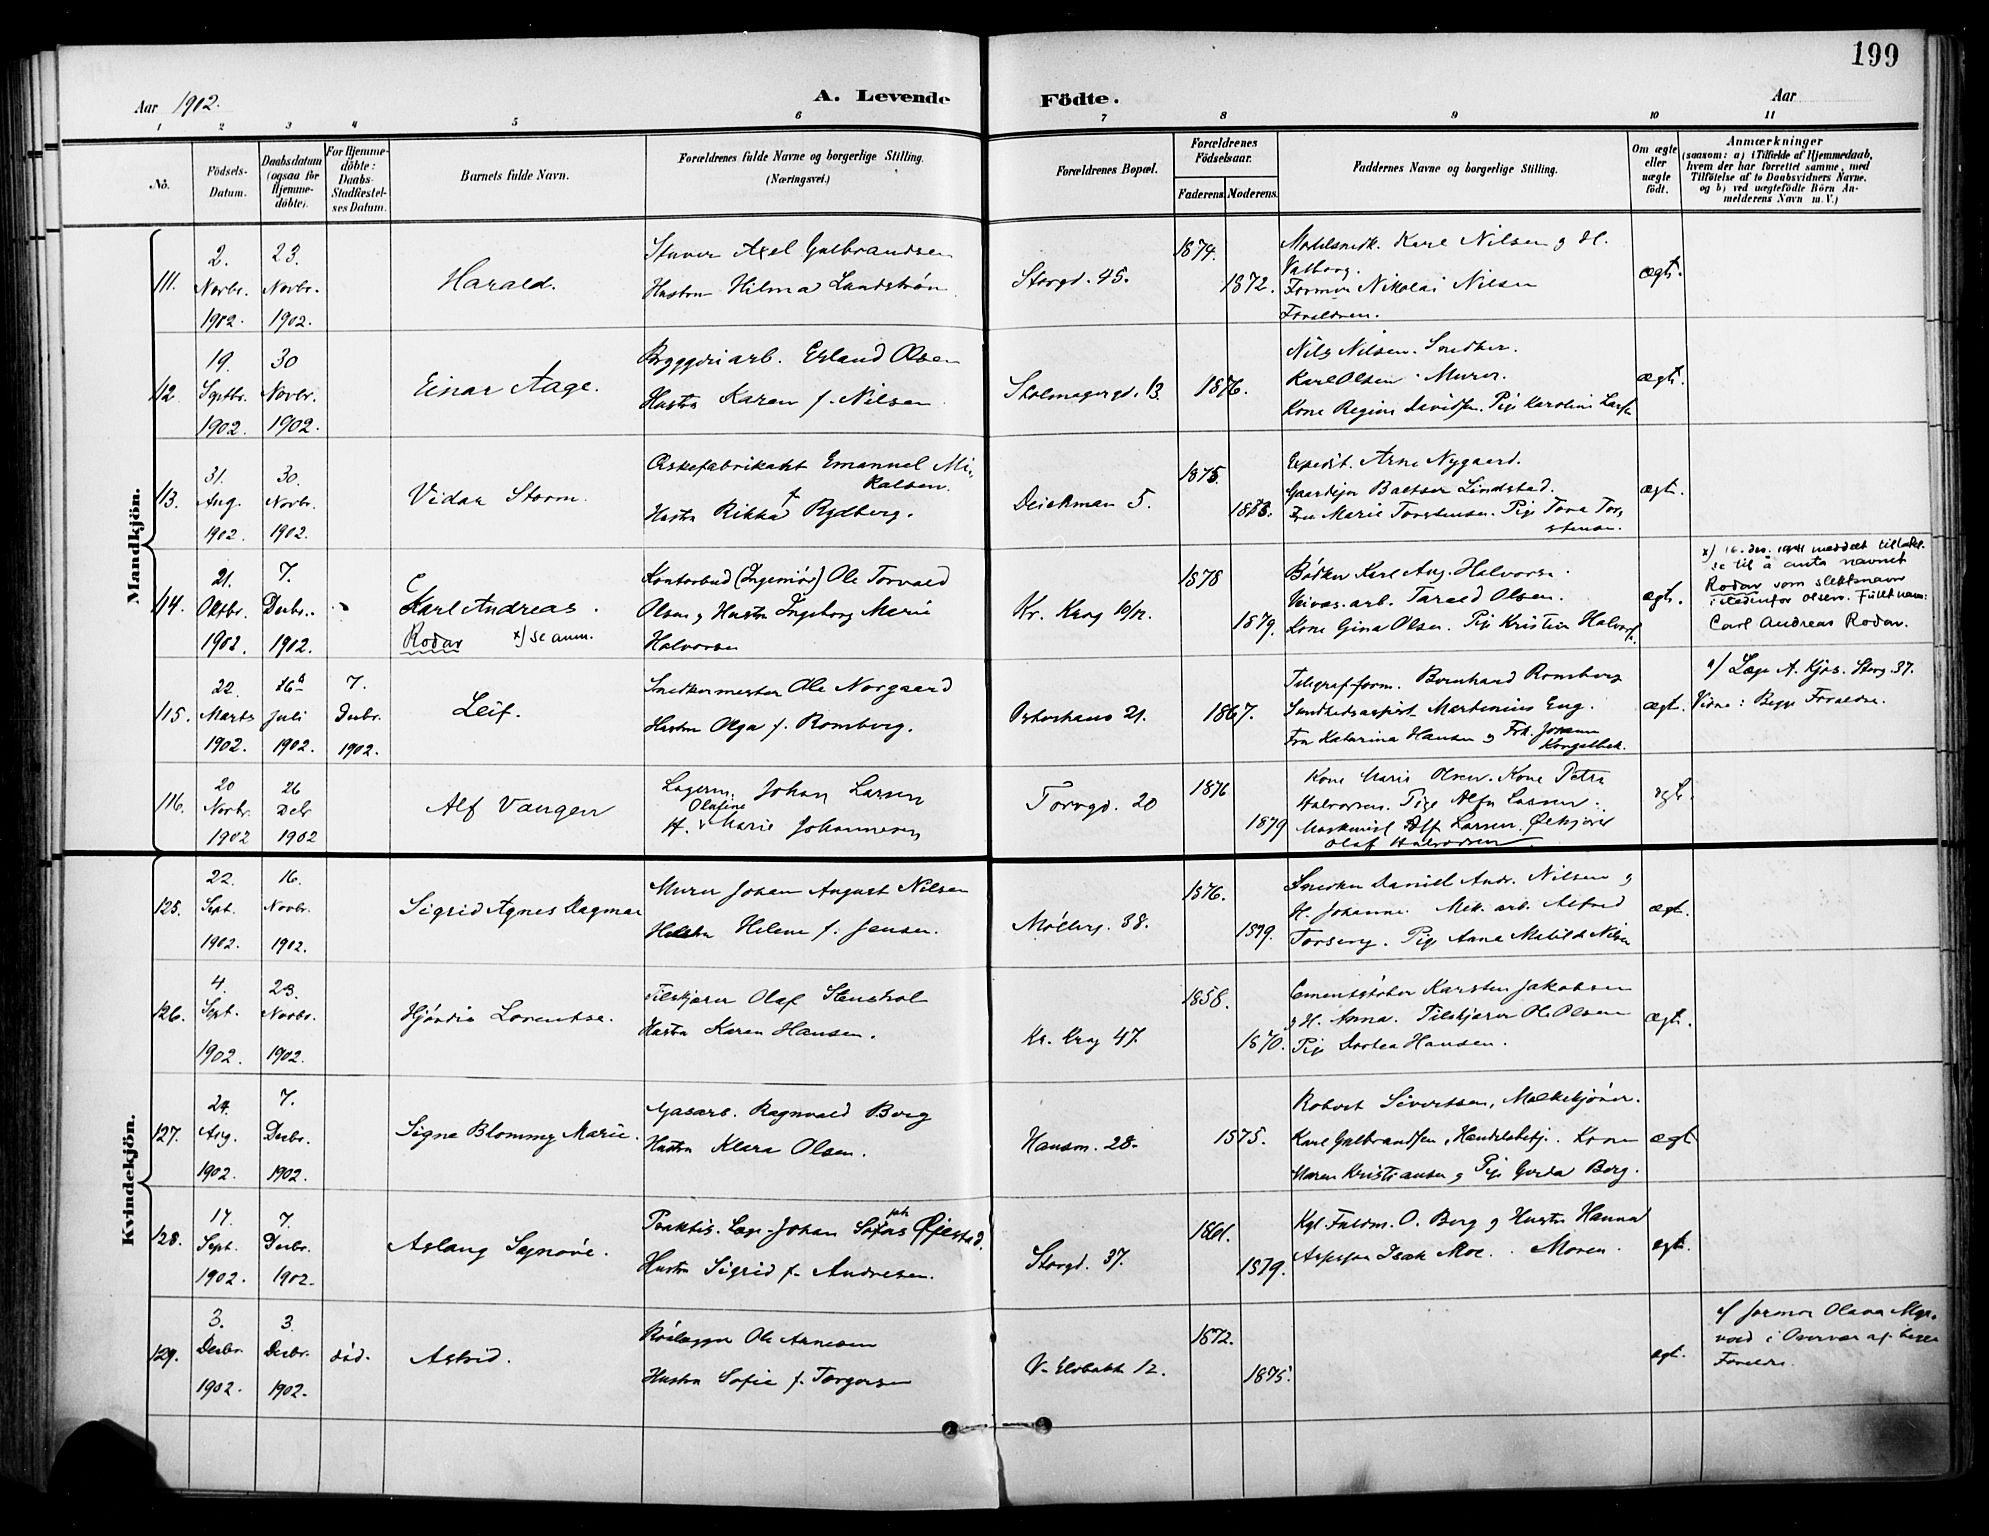 199
Aar 1902.
A. Levende Födte.
Aar
1 2 3 4 5 6 7 8 9 10 11
No.
Födsels-Datum.
Daabsdatum (ogsaa for Hjemme-döbte).
For Hjemme-döbte: Daabs-Stadfæstel-ses Datum.
Barnets fulde Navn.
Forældrenes fulde Navne og borgerlige Stilling. (Næringsvei.)
Forældrenes Bopæl.
Forældrenes Födselsaar.
Faderens. Moderens.
Faddernes Navne og borgerlige Stilling.
Om ægte eller uægte födt.
Anmærkninger
(saasom: a) i Tilfælde af Hjemmedaab,
hvem der har forrettet samme, med
Tilföielse af to Daabsvidners Navne,
og b) ved uægtefödte Börn An-
melderens Navn m. V.)
Mandkjön.
111.
2. Novbr. 1902
23. Novbr. 1902.
Harald.
Stuver Axel Gulbrandsen
Hustru Hilma Lundstrøm
Storgd. 45.
1874.
1872.
Modelsnedk. Karl Nilsen g H.
Valborg.
Former Nikolai Nilsen
Forældren.
ægt.
112.
19. Septbr. 1902.
30 Novbr. 1902.
Einar Aage.
Byggeriarb. Erland Olsen
Hustru Karen f. Nilsen
Stolmagergd. 13.
1876.
Nils Nilsen. Snedker.
Karl Olsen. Murer.
Kone Regine Davidsen. Pige Karoline Larsen
ægt.
113.
31. Aug. 1902.
30. Novbr. 1902.
Vidar Storm.
Æskefabrikant Emanuel Mi-
kalsen.
Hustru Rikka Rydberg.
Deichman 5.
1875.
1878.
Expedit. Arne Nygaard.
Gaardejer Baltser Lindstad.
Fru Marie Torstensen. Pige Tora Tor-
stensen.
ægt.
114.
21. Oktbr. 1902.
7. Decbr. 1902.
C
Karl Andreas.
Rodar x) se anm.
Kontorbud (Ingeniør) Ole Torvald
Olsen g Hustru Ingeborg Marie
Halvorsen
Kr. Krog 10/12.
1878
1879.
Bødker Karl Aug. Halvorsen.
Veivas. arb. Tarald Olsen.
Kone Gina Olsen. Pige Kristine Halvors.
ægt.
x) 16. des. 1941 meddelt tillatel-
se til å anta navnet
Rodar som slektsnavn
istedenfor Olsen. Fullt navn:
Carl Andreas Rodar.
115.
22. Marts 1902.
26 a) Juli 1902.
7. Decbr. 1902.
Leif.
Snedkermester Ole Norgaard
Hustru Olga f. Romberg.
Osterhaus 21.
1867.
Telegrafform. Bernhard Romberg
Sundhedsassist Martinius Eng.
Fru Katarina Hansen g Frk. Joramm
Kongelbek.
ægt.
a) Læge A. Kjøs. Storg. 37.
Vidne: Begge Forældre.
116.
20 Novbr. 1902
26 Dcbr 1902
Alf Vangen
Lagerm. Johan Larsen
Olafine
H. v Marie Johannesen
Torvgd. 20
1876
1879
Kone Marie Olsen. Kone Petra
Halvorsen. Pige Alfa Larsen.
Maskinist Alf Larsen.
Olaf Halvorsen.
ægt.
Kvindekjön.
125.
22. Sept. 1902.
16. Novbr. 1902.
Sigrid Agnes Dagmar
Murer Johan August Nilsen
Hustru Helene f. Jensen.
Mølleg. 38.
1876.
1879.
Snedker Daniel Andr. Nilsen g
H. Johanne. Mek. arb. Alfred
Torseng. Pige Anna Matilde Nilsen
ægt.
126.
4. Sept. 1902.
23. Novbr. 1902.
Hjørdis Lorentse.
Fliskjører Olaf Stenshol
Hustru Karen Hansen.
Kr. Krog 47.
1858.
1870.
Cementstøber Karsten Jakobsen
g H. Anna. Fliskjører Ole Olsen
Pige Dortea Hansen.
ægt.
127.
24. Aug. 1902.
7. Decbr. 1902.
Signe Blommy Marie.
Gasarb. Ragnvald Berg
Hustru Klara Olsen.
Hausm. 28.
1875.
Robert Sivertsen, Mælkekjører.
Karl Gulbrandsen, Handelsbetj. Kone
Maren Kristiansen g Pige Gerda Berg.
ægt
128.
17. Sept. 1902.
7. Decbr. 1902.
Aslaug Synnøve.
Praktis. Læge Johan Sofus Øiestad.
Hustru Sigrid f. Andresen.
Storgd. 37.
1861.
1879.
Kgl. Fuldm. O. Berg g Hustru Hanna
Isak Moe. Moren.
ægt.
129.
3. Decbr. 1902.
3. Decbr. 1902.
død.
Astrid.
Rørlægger Ole Arnesen
Hustru Sofie f. Torgersen
V. Elvbakk 12.
1872.
1875.
ægt.
a) Jormor Olava Myr-
vold i Overvær af begge
Forældre.